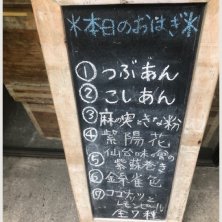 ＊本日のおはぎ＊
① つぶあん
② こしあん
③ 麻の実ときな粉
④ 紫陽花
⑤ 仙台味噌の
紫蘇巻き
⑥ 金平雀包
⑦ ココナッツと
レモンピール
全7種